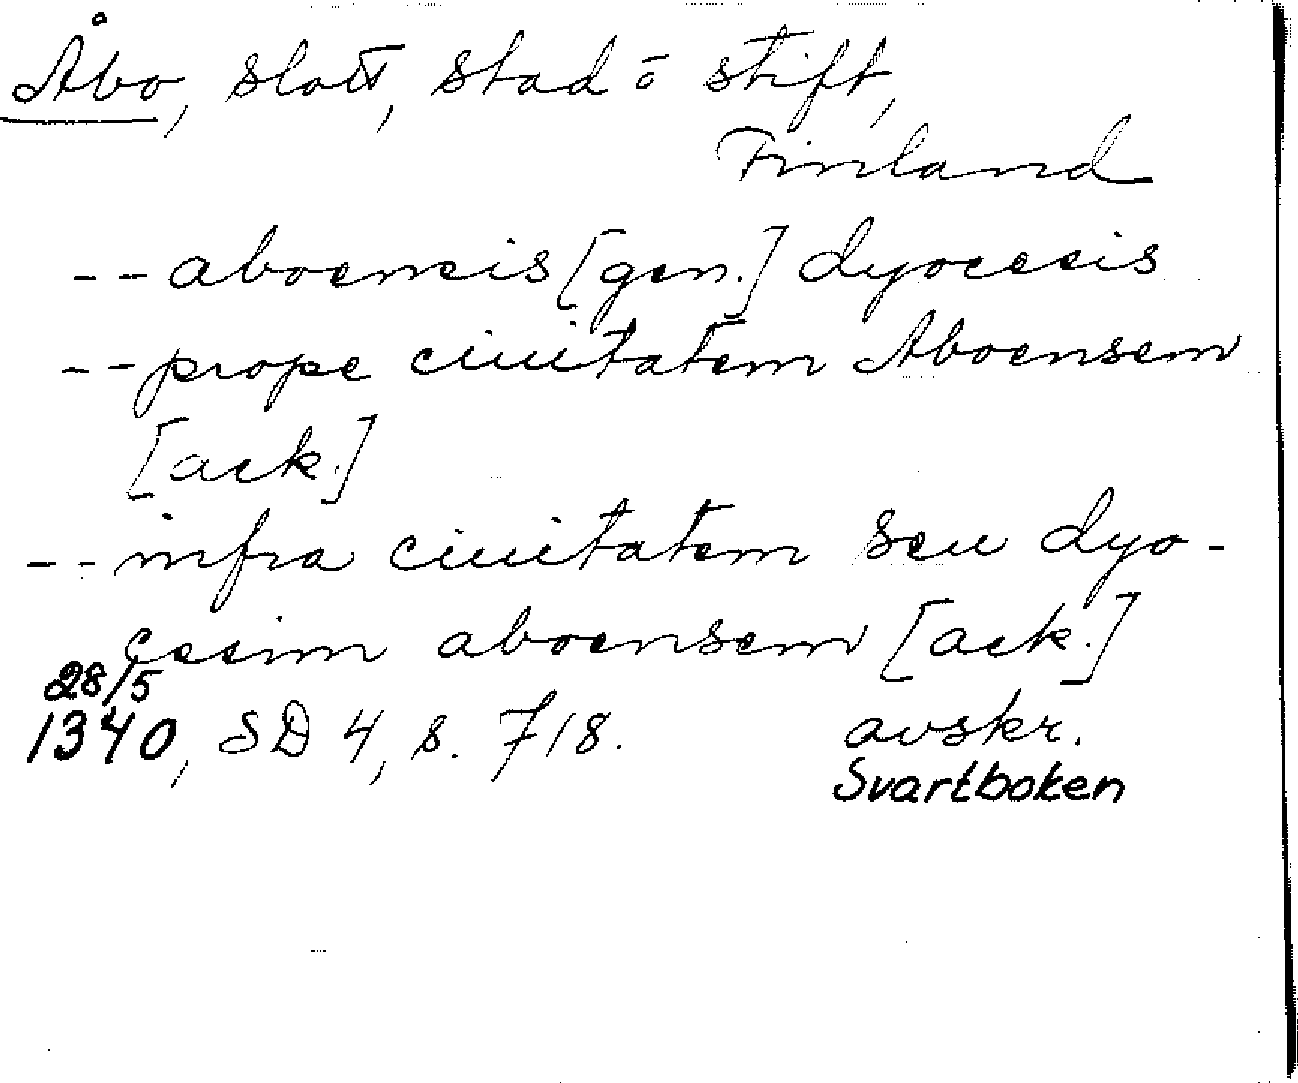 Åbo, slott, stad o stift,
Finland
-- aboensis [gen.] dyocesis
-- prope ciuitatem Aboensem
[ack.]
-- infra ciuitatem seu dyo-
cesim aboensem [ack.]
28/5
1340, SD 4, s. 718. avskr.
Svartboken